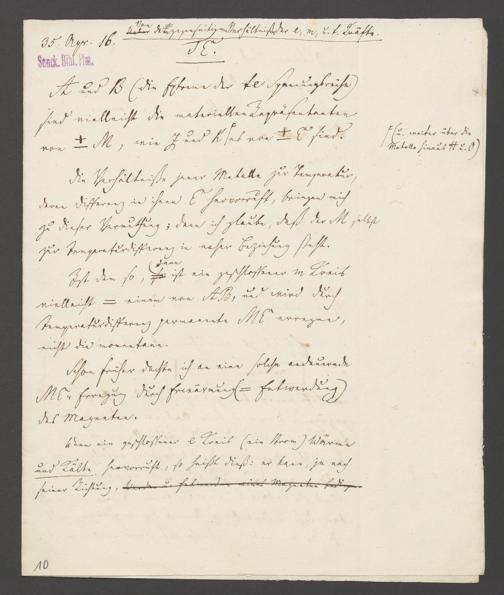 35. Apr. 16.
Von dem gegenseitigen Verhältniß der e, m, u. t. Kräfte.
T E.
Senck. Bibl. Ffm.
A und B (die Extreme der te Spannungsreihe)
sind vielleicht die materiellen Repräsentanten
von ± M, wie Z und K es von ± E sind.
(u. weiter über die
Metalle hinaus H u. O)
Die Verhältnisse jener Metalle zur Temperatur,
deren Differenz in ihnen E hervorruft, bringen mich
zu dieser Vermuthung; denn ich glaube, daß der M selbst
zur Temperaturdifferenz in naher Beziehung steht.
Ist dem so, dann ist ein geschlossener m Kreis
vielleicht = einem von A B, und wird durch
Temperaturdifferenz permanente ME erregen,
nicht die momentane.
Schon früher dachte ich an eine solche andauernde
ME Erregung durch Erwärmung (= Entwerdung)
des Magneten.
Wenn ein geschlossener e Kreis (ein Strom) Wärme
und Kälte hervorruft, so heißt dieß: er kann, je nach
seiner Richtung,
10